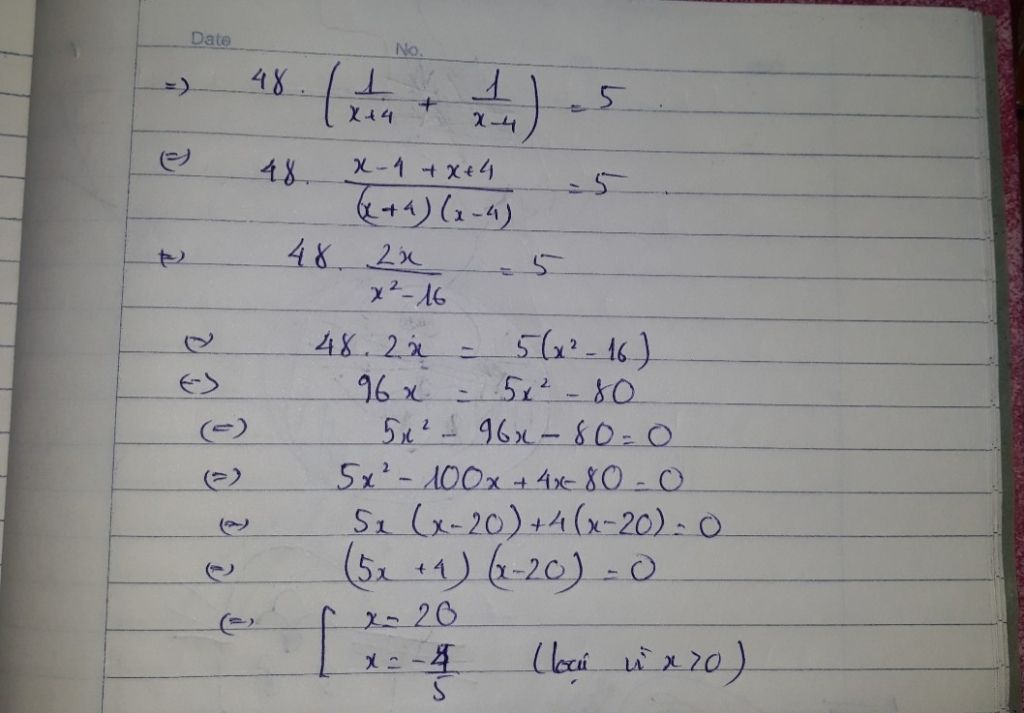 Date No.
=) 48. (1/(x+4) + 1/(x-4)) = 5.
(=) 48. (x-4+x+4)/((x+4)(x-4)) = 5.
(=) 48. 2x/(x²-16) = 5
(=) 48.2x = 5(x²-16)
(=) 96x = 5x² - 80
(=) 5x² - 96x - 80 = 0
(=) 5x² - 100x + 4x - 80 = 0
(=) 5x (x-20) + 4(x-20) = 0
(=) (5x + 4) (x-20) = 0
(=) [ x = 20
x = -4/5 (loại vì x>0)